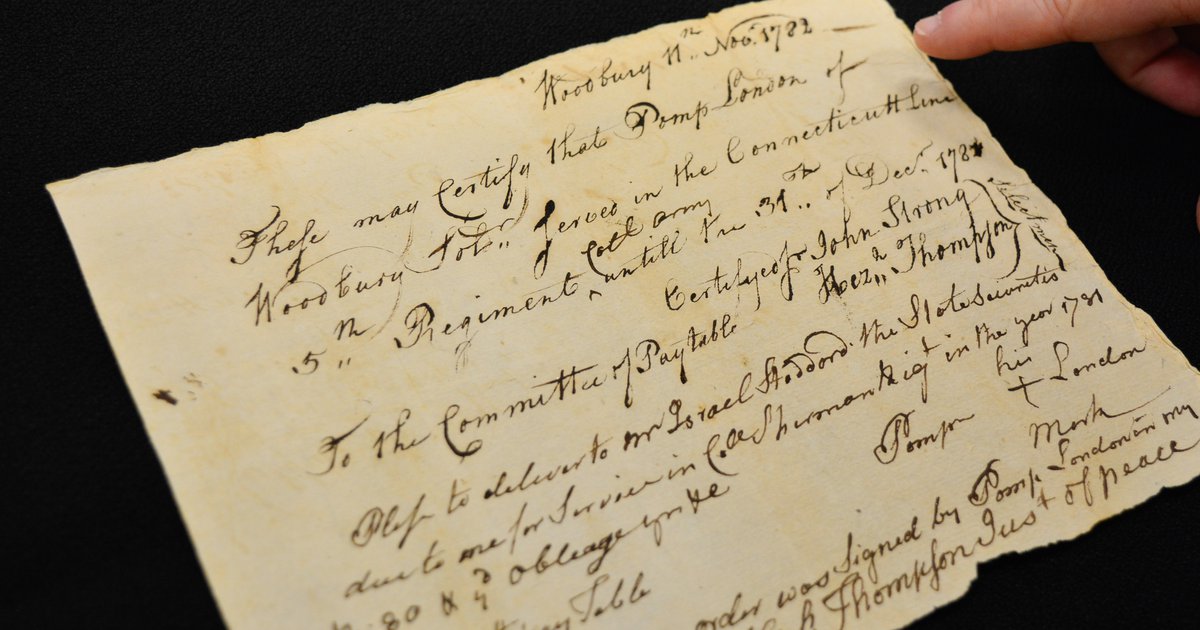 Woodbury 11th Novr. 1782
These may Certify that Pomp London of
Woodbury served in the Connecticutt Line
5th Regiment Coll army untill the 31st of Decr. 1781
Certifyed pr John Strong
Hezh Thompson
Select men
To the Committee of Paytable
Plese to deliver to mr Israel Stoddord the State Securitis
due to me for Service in Coll Shermans Rigt in the year 1781
obleage yrs &c
Pomp his + London
Mark
Table
order was Signed by Pomp London in my
Thompson Just of peace